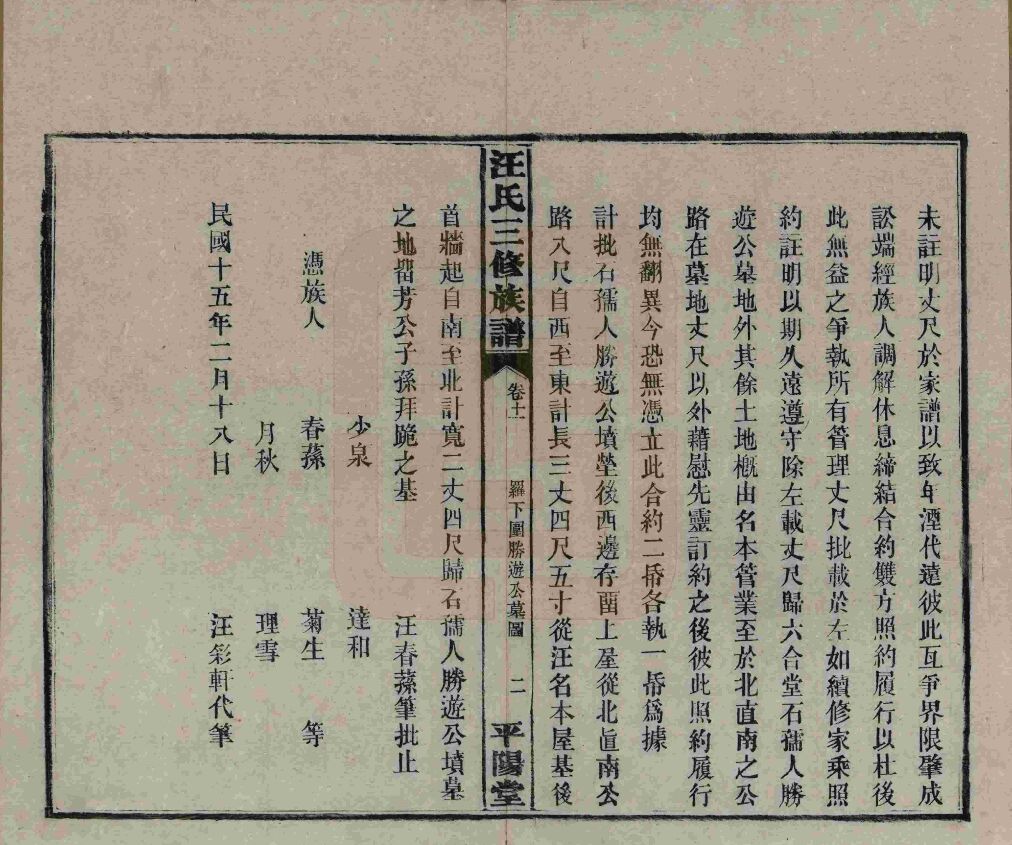 未註明丈尺於家譜以致年湮代遠彼此互爭界限肇成
訟端經族人調解休息締結合約雙方照約履行以杜後
此無益之爭執所有管理丈尺批載於左如續修家乘照
約註明以期久遠遵守除左載丈尺歸六合堂石孺人勝
遊公墓地外其餘土地概由名本管業至於北直南之公
路在墓地丈尺以外藉慰先靈訂約之後彼此照約履行
均無翻異今恐無憑立此合約二帋各執一帋爲據
計批石孺人勝遊公墳塋後西邊存畱上屋從北直南公
路八尺自西至東計長三丈四尺五寸從汪名本屋基後
汪氏三修族譜
卷十一
羅下圍勝遊公墓圖
二
平陽堂
首牆起自南至北計寬二丈四尺歸石孺人勝遊公墳墓
之地畱芳公子孫拜跪之基 汪春蓀筆批止
少泉 達和
憑族人 春蓀 菊生 等
月秋 理雪
民國十五年二月十八日 汪彩軒代筆